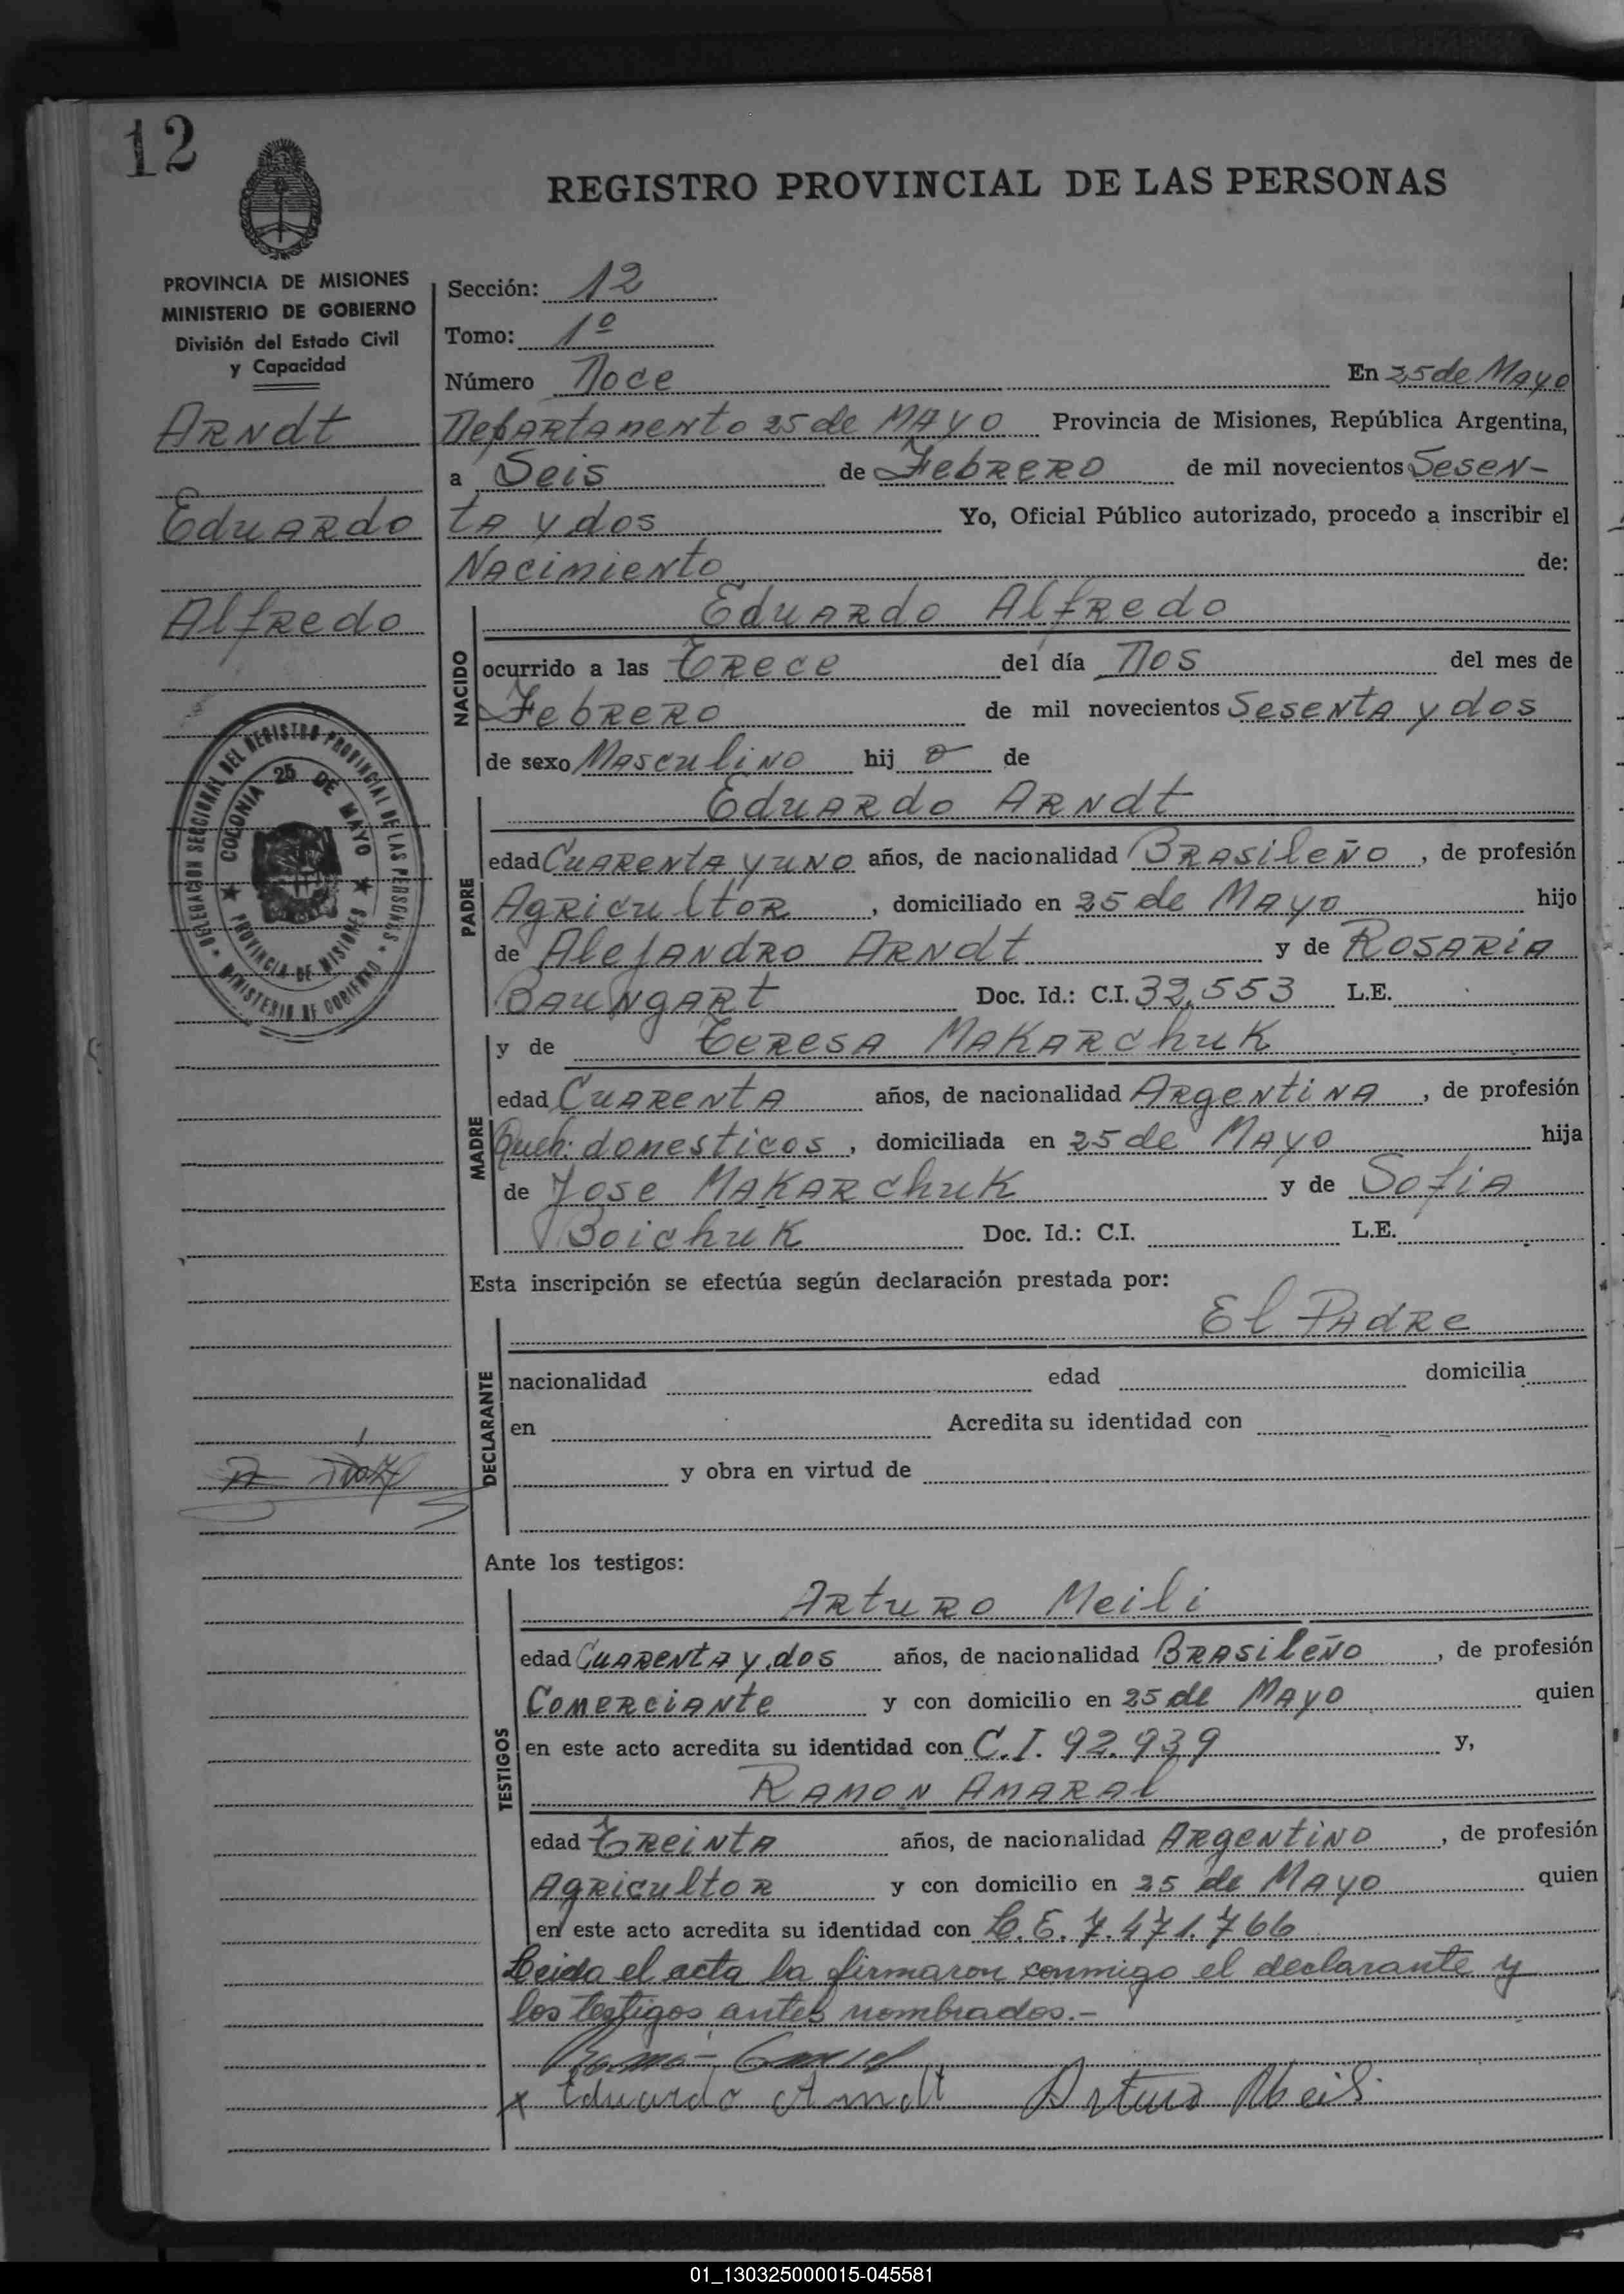 12
REGISTRO PROVINCIAL DE LAS PERSONAS
PROVINCIA DE MISIONES
MINISTERIO DE GOBIERNO
División del Estado Civil
y Capacidad
Arndt
Eduardo
Alfredo
DELEGACION SECCIONAL DEL REGISTRO PROVINCIAL DE LAS PERSONAS
MINISTERIO DE GOBIERNO
COLONIA 25 DE MAYO
PROVINCIA DE MISIONES
Sección: 12
Tomo: 1º
Número Doce En 25 de Mayo
Departamento 25 de Mayo Provincia de Misiones, República Argentina,
a Seis de Febrero de mil novecientos Sesen-
ta y dos Yo, Oficial Público autorizado, procedo a inscribir el
Nacimiento de:
NACIDO
Eduardo Alfredo
ocurrido a las Trece del día Dos del mes de
Febrero de mil novecientos Sesenta y dos
de sexo Masculino hij o de
PADRE
Eduardo Arndt
edad Cuarenta y uno años, de nacionalidad Brasileño, de profesión
Agricultor, domiciliado en 25 de Mayo hijo
de Alejandro Arndt y de Rosaria
Baungart Doc. Id.: C.I. 32.553 L.E.
MADRE
y de Teresa Makarchuk
edad Cuarenta años, de nacionalidad Argentina, de profesión
Queh. domesticos, domiciliada en 25 de Mayo hija
de Jose Makarchuk y de Sofia
Boichuk Doc. Id.: C.I. L.E.
Esta inscripción se efectúa según declaración prestada por:
DECLARANTE
El Padre
nacionalidad edad domicilia
en Acredita su identidad con
y obra en virtud de
Ante los testigos:
TESTIGOS
Arturo Meili
edad Cuarenta y dos años, de nacionalidad Brasileño, de profesión
Comerciante y con domicilio en 25 de Mayo quien
en este acto acredita su identidad con C.I. 92.939 y,
Ramon Amaral
edad Treinta años, de nacionalidad Argentino, de profesión
Agricultor y con domicilio en 25 de Mayo quien
en este acto acredita su identidad con L.E. 7.471.766
Leida el acta la firmaron conmigo el declarante y
los testigos antes nombrados.-
x Eduardo Arndt Arturo Meili
01_130325000015-045581